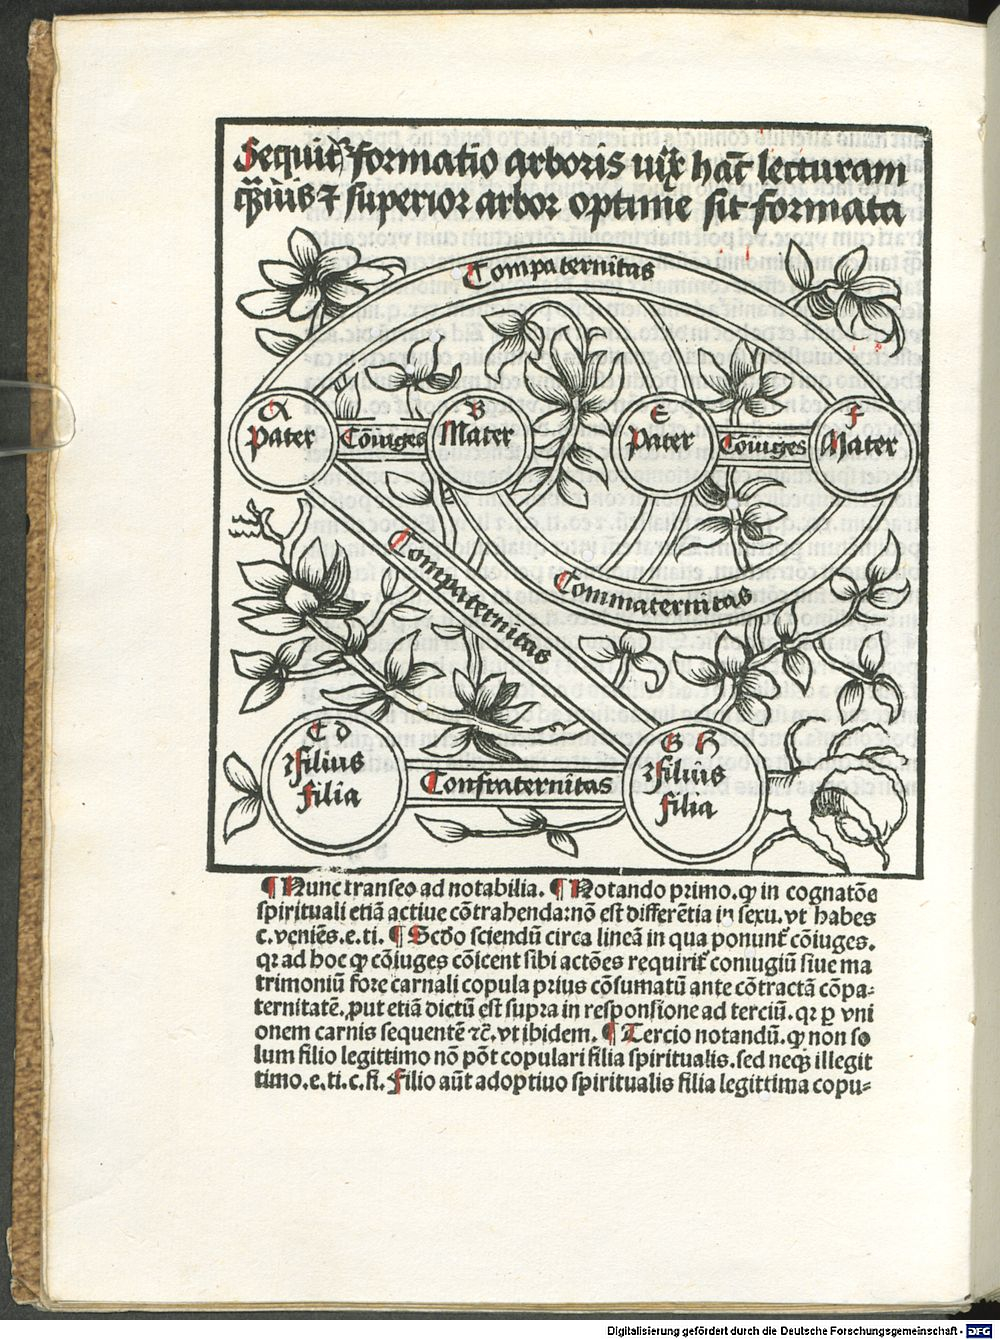 Sequit᷑ formatio arboris iux̄ hac̄ lecturam
q̈uis ⁊ superior arbor optime sit formata
Compaternitas
A
Pater
Cōiuges
B
Mater
E
Pater
Cōiuges
F
Mater
Compaternitas
Commaternitas
C D
⁊filius
filia
Confraternitas
G H
⁊filius
filia
¶ Nunc transeo ad notabilia. ¶ Notando primo. ꝙ in cognatōe
spirituali etiā actiue cōtrahenda: nō est differētia in sexu. vt habes
c. veniēs. e. ti. ¶ Scd̄o sciendū circa lineā in qua ponunt᷑ cōiuges.
qꝛ ad hoc ꝙ cōiuges cōicent sibi actōes requirit᷑ coniugiū siue ma
trimoniū fore carnali copula prius cōsumatū ante cōtractā cōpa⸗
ternitatē. ꝓut etiā dictū est supra in responsione ad terciū. qꝛ ꝑ vni
onem carnis sequentē ⁊c̄. vt ibidem. ¶ Tercio notandū. ꝙ non so
lum filio legittimo nō pōt copulari filia spiritualis. sed neqꝫ illegit
timo. e. ti. c. fi. Filio aūt adoptiuo spiritualis filia legittima copu⸗
Digitalisierung gefördert durch die Deutsche Forschungsgemeinschaft - DFG